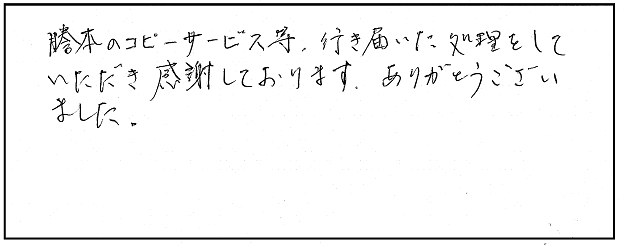 謄本のコピーサービス等、行き届いた処理をして
いただき感謝しております。ありがとうござい
ました。